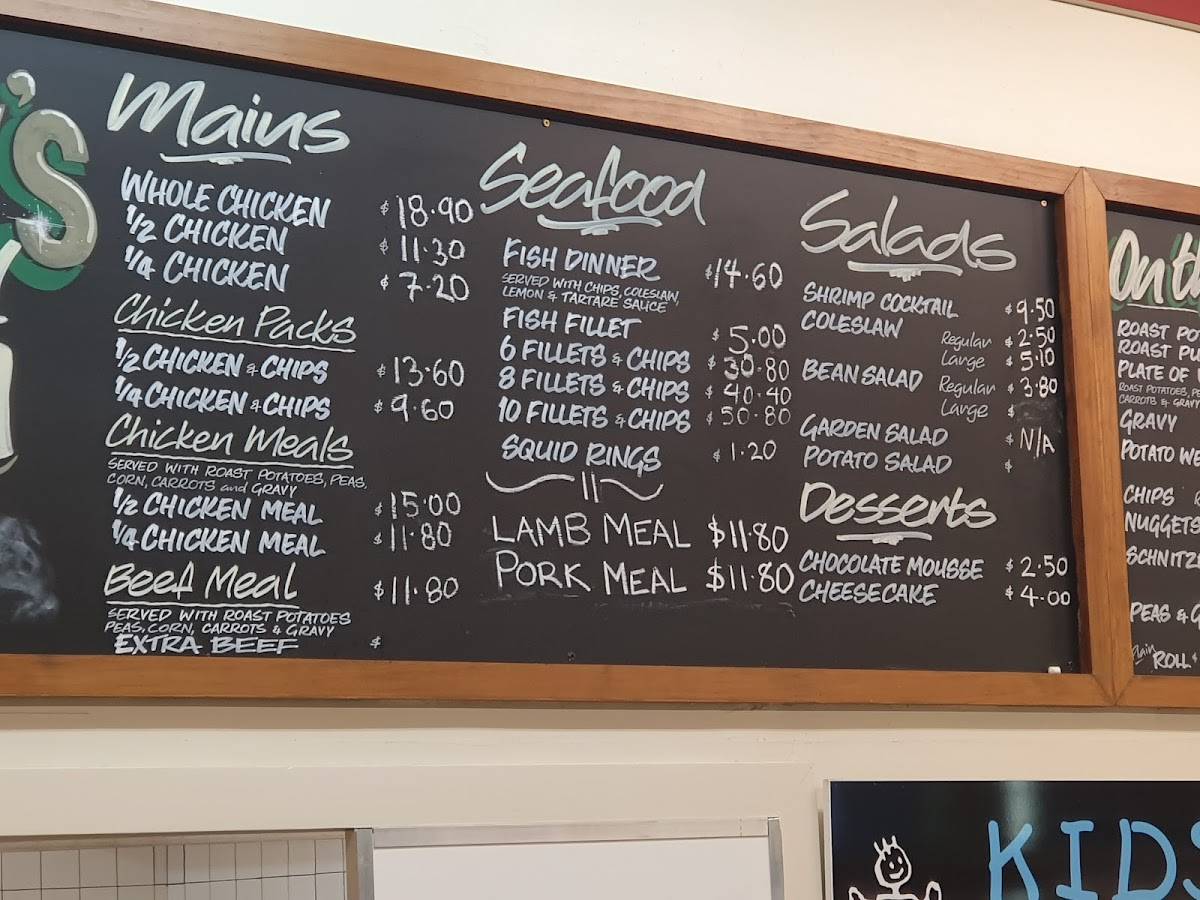 's
Mains
WHOLE CHICKEN $18.90
1/2 CHICKEN $11.30
1/4 CHICKEN $7.20
Chicken Packs
1/2 CHICKEN & CHIPS $13.60
1/4 CHICKEN & CHIPS $9.60
Chicken Meals
SERVED WITH ROAST POTATOES, PEAS,
CORN, CARROTS and GRAVY
1/2 CHICKEN MEAL $15.00
1/4 CHICKEN MEAL $11.80
Beef Meal $11.80
SERVED WITH ROAST POTATOES
PEAS, CORN, CARROTS & GRAVY
EXTRA BEEF $
Seafood
FISH DINNER $14.60
SERVED WITH CHIPS, COLESLAW,
LEMON & TARTARE SAUCE
FISH FILLET $5.00
6 FILLETS & CHIPS $30.80
8 FILLETS & CHIPS $40.40
10 FILLETS & CHIPS $50.80
SQUID RINGS $1.20
LAMB MEAL $11.80
PORK MEAL $11.80
Salads
SHRIMP COCKTAIL $9.50
COLESLAW Regular $2.50
Large $5.10
BEAN SALAD Regular $3.80
Large $
GARDEN SALAD $N/A
POTATO SALAD $
Desserts
CHOCOLATE MOUSSE $2.50
CHEESECAKE $4.00
On
ROAST
ROAST
PLATE OF
ROAST POTATOES,
CARROTS & GRAVY
GRAVY
POTATO
CHIPS
NUGGETS
PEAS &
Plain ROLL
KIDS